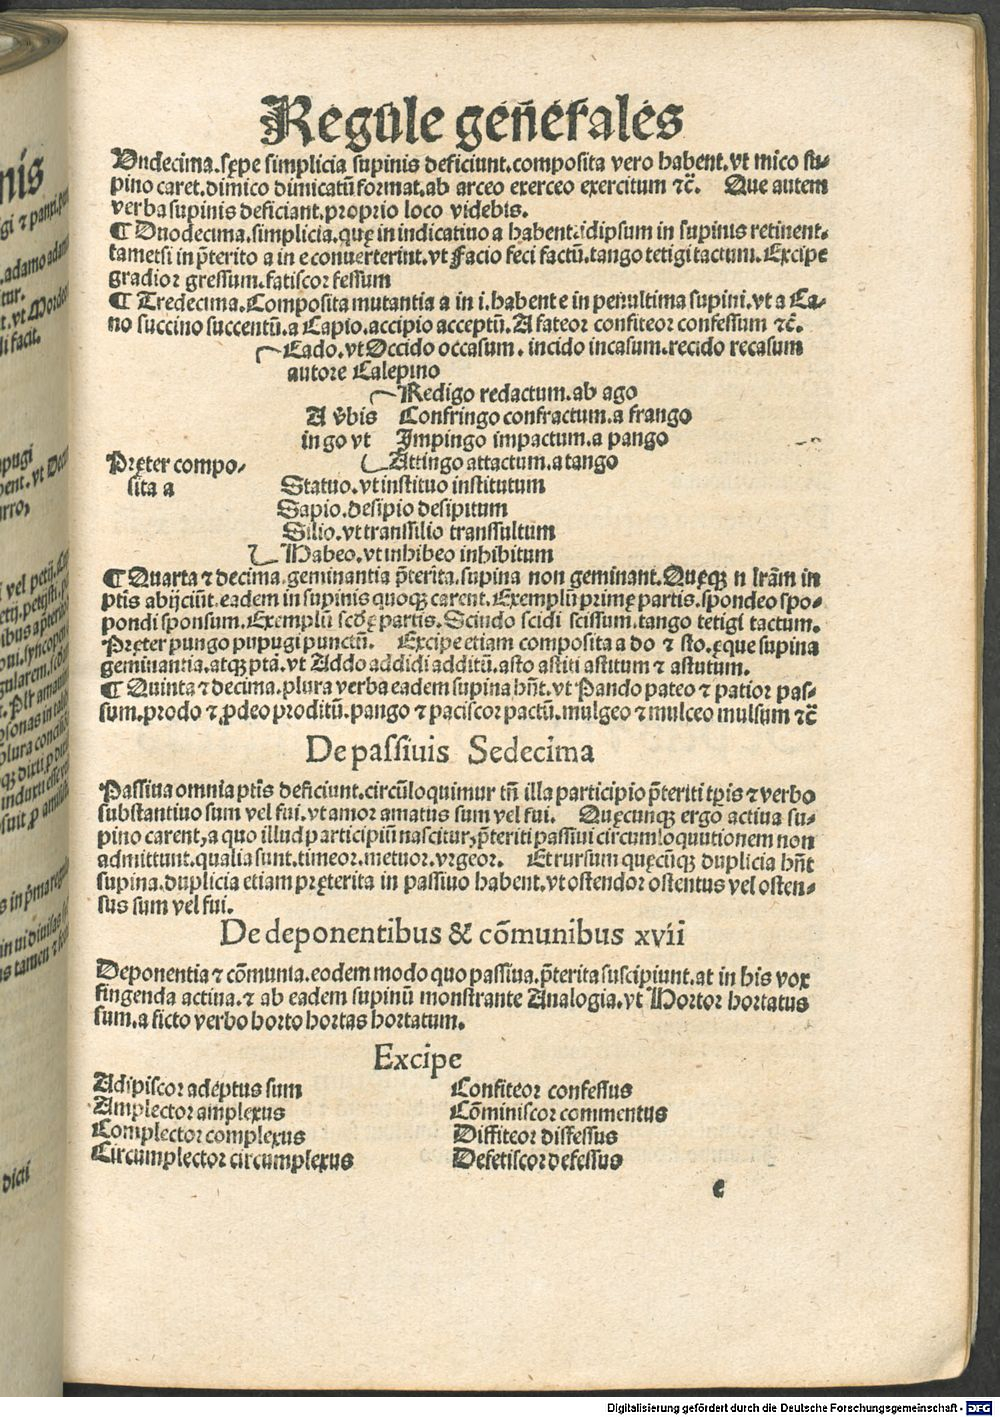 Regule gen̄erales
Vndecima.sępe simplicia supinis deficiunt.composita vero habent.vt mico su⸗
pino caret.dimico dimicatū format.ab arceo exerceo exercitum ⁊c̄. Que autem
verba supinis deficiant.proprio loco videbis.
¶ Duodecima.simplicia.quę in indicatiuo a habent:idipsum in supinis retinent⸗
tametsi in p̄terito a in e conuerterint.vt Facio feci factū.tango tetigi tactum.Excipe
gradior gressum.fatiscor fessum
¶ Tredecima.Composita mutantia a in i.habent e in penultima supini.vt a Ca⸗
no succino succentū.a Capio.accipio acceptū.A fateor confiteor confessum ⁊c̄.
Cado.vt Occido occasum.incido incasum.recido recasum
autore Calepino
Redigo redactum.ab ago
A v̄bis Confringo confractum.a frango
in go vt Impingo impactum.a pango
Pręter compo⸗ Attingo attactum.a tango
sita a Statuo.vt instituo institutum
Sapio.desipio desipitum
Silio.vt transsilio transsultum
Habeo.vt inhibeo inhibitum
¶ Quarta ⁊ decima.geminantia p̄terita.supina non geminant.Quęcꝗ n lr̄am in
p̄tis abijciūt.eadem in supinis quoqꝫ carent.Exemplū primę partis.spondeo spo⸗
pondi sponsum.Exemplū scd̄ę partis.Scindo scidi scissum.tango tetigi tactum.
Pręter pungo pupugi punctū. Excipe etiam composita a do ⁊ sto.ęque supina
geminantia.atqꝫ p̄ta.vt Addo addidi additū.asto astiti astitum ⁊ astutum.
¶ Quinta ⁊ decima.plura verba eadem supina hn̄t.vt Pando pateo ⁊ patior pas⸗
sum.prodo ⁊ ꝓdeo proditū.pango ⁊ paciscor pactū.mulgeo ⁊ mulceo mulsum ⁊c̄
De passiuis Sedecima
Passiua omnia p̄tis deficiunt.circūloquimur tn̄ illa participio p̄teriti tp̄is ⁊ verbo
substantiuo sum vel fui.vt amor amatus sum vel fui. Quęcunqꝫ ergo actiua su⸗
pino carent,a quo illud participiū nascitur,p̄teriti passiui circumloquutionem non
admittunt.qualia sunt.timeor.metuor.vrgeor. Et rursum quęcūqꝫ duplicia hn̄t
supina.duplicia etiam pręterita in passiuo habent.vt ostendor ostentus vel osten⸗
sus sum vel fui.
De deponentibus & cōmunibus xvii
Deponentia ⁊ cōmunia.eodem modo quo passiua.p̄terita suscipiunt.at in his vox
fingenda actiua.⁊ ab eadem supinū monstrante Analogia.vt Hortor hortatus
sum.a ficto verbo horto hortas hortatum.
Excipe
Adipiscor adeptus sum Confiteor confessus
Amplector amplexus Cōminiscor commentus
Complector complexus Diffiteor diffessus
Circumplector circumplexus Defetiscor defessus
e
Digitalisierung gefördert durch die Deutsche Forschungsgemeinschaft - DFG